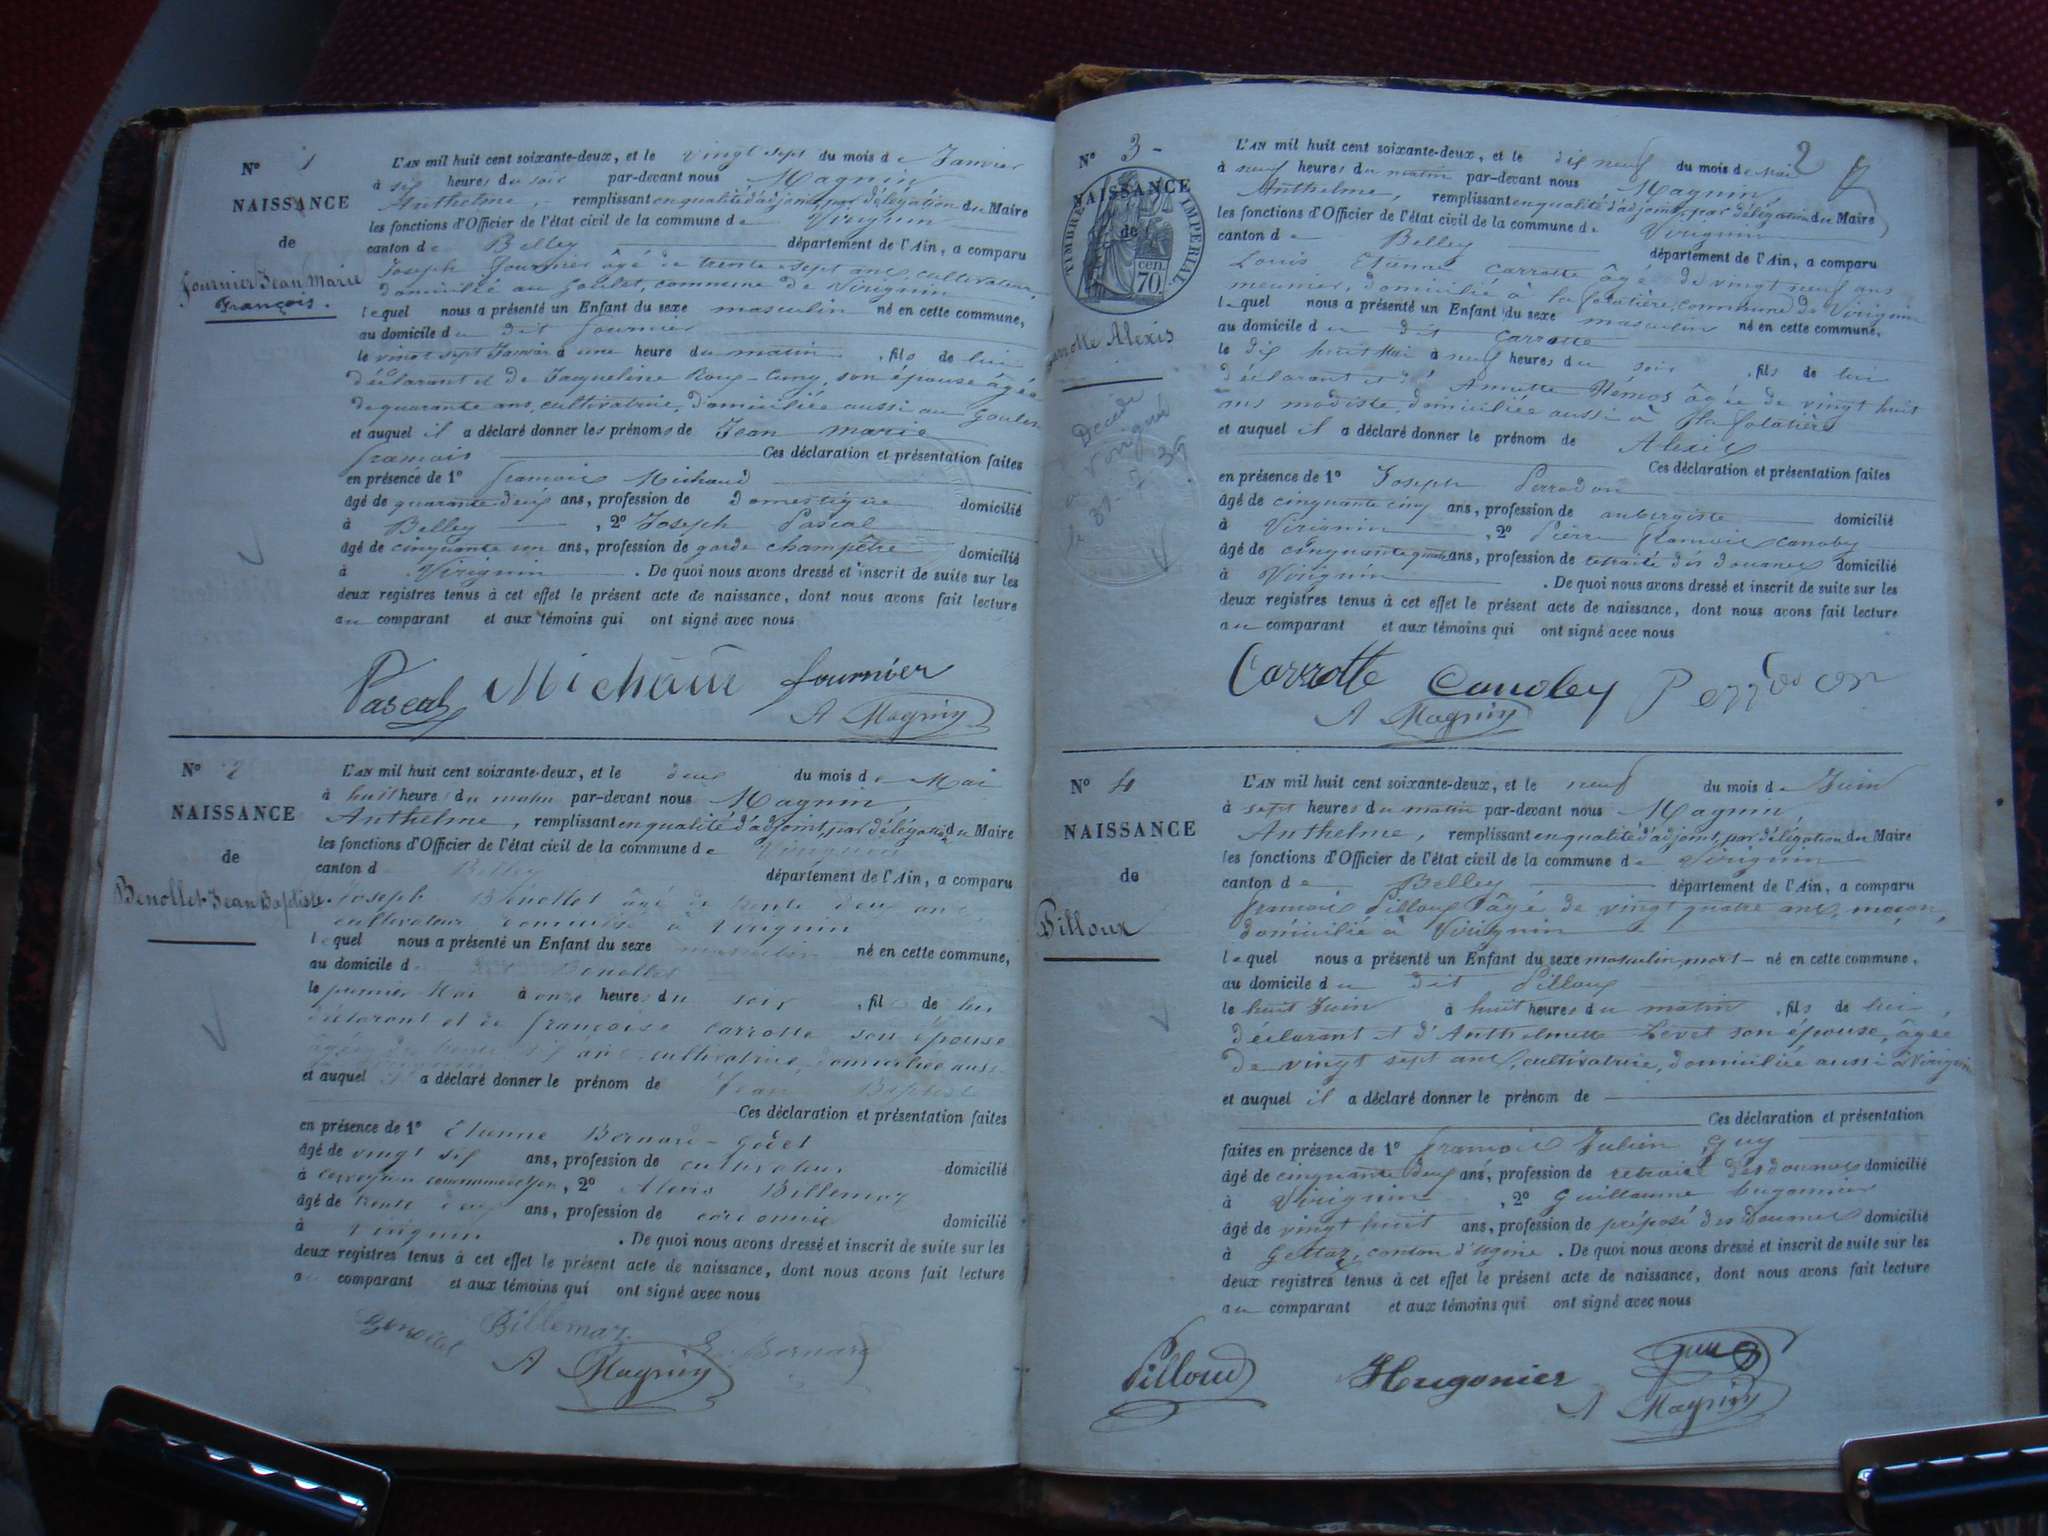 N° 1
NAISSANCE
de
Fournier Jean Marie
François.
L'AN mil huit cent soixante-deux, et le vingt sept du mois de Janvier
à six heures du soir par-devant nous Magnin
Anthelme, remplissant en qualité d'adjoint, par délégation du Maire
les fonctions d'Officier de l'état civil de la commune de Virignin
canton de Belley département de l'Ain, a comparu
Joseph Fournier âgé de trente sept ans, cultivateur,
domicilié au Goulet, commune de Virignin
lequel nous a présenté un Enfant du sexe masculin né en cette commune,
au domicile du dit Fournier
le vingt sept Janvier à une heure du matin, fils de lui
déclarant et de Jacqueline Roux-Cuny, son épouse âgée
de quarante ans, cultivatrice, domiciliée aussi au Goulet
et auquel il a déclaré donner les prénoms de Jean Marie
françois Ces déclaration et présentation faites
en présence de 1° françois Michaud
âgé de quarante deux ans, profession de domestique domicilié
à Belley, 2° Joseph Pascal
âgé de cinquante un ans, profession de garde champêtre domicilié
à Virignin. De quoi nous avons dressé et inscrit de suite sur les
deux registres tenus à cet effet le présent acte de naissance, dont nous avons fait lecture
au comparant et aux témoins qui ont signé avec nous
Pascal Michaud fournier
A Magnin
N° 2
NAISSANCE
de
Benollet Jean Baptiste.
L'AN mil huit cent soixante-deux, et le deux du mois de Mai
à huit heures du matin par-devant nous Magnin,
Anthelme, remplissant en qualité d'adjoint, par délégation du Maire
les fonctions d'Officier de l'état civil de la commune de Virignin
canton de Belley département de l'Ain, a comparu
Joseph Benollet âgé de trente deux ans
cultivateur domicilié à Virignin
lequel nous a présenté un Enfant du sexe masculin né en cette commune,
au domicile du dit Benollet
le premier Mai à onze heures du soir, fils de lui
déclarant et de françoise Carrotte son épouse
âgée de trente six ans cultivatrice, domiciliée aussi
et auquel il a déclaré donner le prénom de Jean Baptiste
Ces déclaration et présentation faites
en présence de 1° Etienne Bernard-
âgé de vingt six ans, profession de cultivateur domicilié
à, 2° Alexis Billemaz
âgé de trente deux ans, profession de cordonnier domicilié
à Virignin. De quoi nous avons dressé et inscrit de suite sur les
deux registres tenus à cet effet le présent acte de naissance, dont nous avons fait lecture
au comparant et aux témoins qui ont signé avec nous
Benollet Billemaz E. Bernard
A Magnin
2
N° 3
NAISSANCE
de
TIMBRE IMPERIAL
70 cen.
Carrotte Alexis
Décédé
à Virigni
L'AN mil huit cent soixante-deux, et le dix neuf du mois de Mai
à neuf heures du matin par-devant nous Magnin,
Anthelme, remplissant en qualité d'adjoint, par délégation du Maire
les fonctions d'Officier de l'état civil de la commune de Virignin
canton de Belley département de l'Ain, a comparu
Louis Etienne Carrotte âgé de vingt neuf ans
meunier, domicilié à la, commune de Virignin
lequel nous a présenté un Enfant du sexe masculin né en cette commune,
au domicile du dit Carrotte
le dix huit Mai à neuf heures du soir, fils de lui
déclarant et d' âgée de vingt huit
ans modiste, domiciliée aussi à
et auquel il a déclaré donner le prénom de Alexis
Ces déclaration et présentation faites
en présence de 1° Joseph Perrodon
âgé de cinquante cinq ans, profession de aubergiste domicilié
à Virignin, 2° Pierre françois Canoby
âgé de cinquante quatre ans, profession de retraité des douanes domicilié
à Virignin. De quoi nous avons dressé et inscrit de suite sur les
deux registres tenus à cet effet le présent acte de naissance, dont nous avons fait lecture
au comparant et aux témoins qui ont signé avec nous
Carrotte Canoby Perrodon
A Magnin
N° 4
NAISSANCE
de
Pilloux
L'AN mil huit cent soixante-deux, et le neuf du mois de Juin
à sept heures du matin par-devant nous Magnin,
Anthelme, remplissant en qualité d'adjoint, par délégation du Maire
les fonctions d'Officier de l'état civil de la commune de Virignin
canton de Belley département de l'Ain, a comparu
françois Pilloux âgé de vingt quatre ans, maçon,
domicilié à Virignin
lequel nous a présenté un Enfant du sexe masculin, mort né en cette commune,
au domicile du dit Pilloux
le huit Juin à huit heures du matin, fils de lui
déclarant et d'Anthelmette Levet son épouse, âgée
de vingt sept ans, cultivatrice, domiciliée aussi à Virignin
et auquel il a déclaré donner le prénom de
Ces déclaration et présentation
faites en présence de 1° françois Julien Guy
âgé de cinquante deux ans, profession de retraité des douanes domicilié
à Virignin, 2° Guillaume hugonnier
âgé de vingt huit ans, profession de préposé des Douanes domicilié
à, canton d'Ugine. De quoi nous avons dressé et inscrit de suite sur les
deux registres tenus à cet effet le présent acte de naissance, dont nous avons fait lecture
au comparant et aux témoins qui ont signé avec nous
Pilloux Hugonier Guy
A Magnin